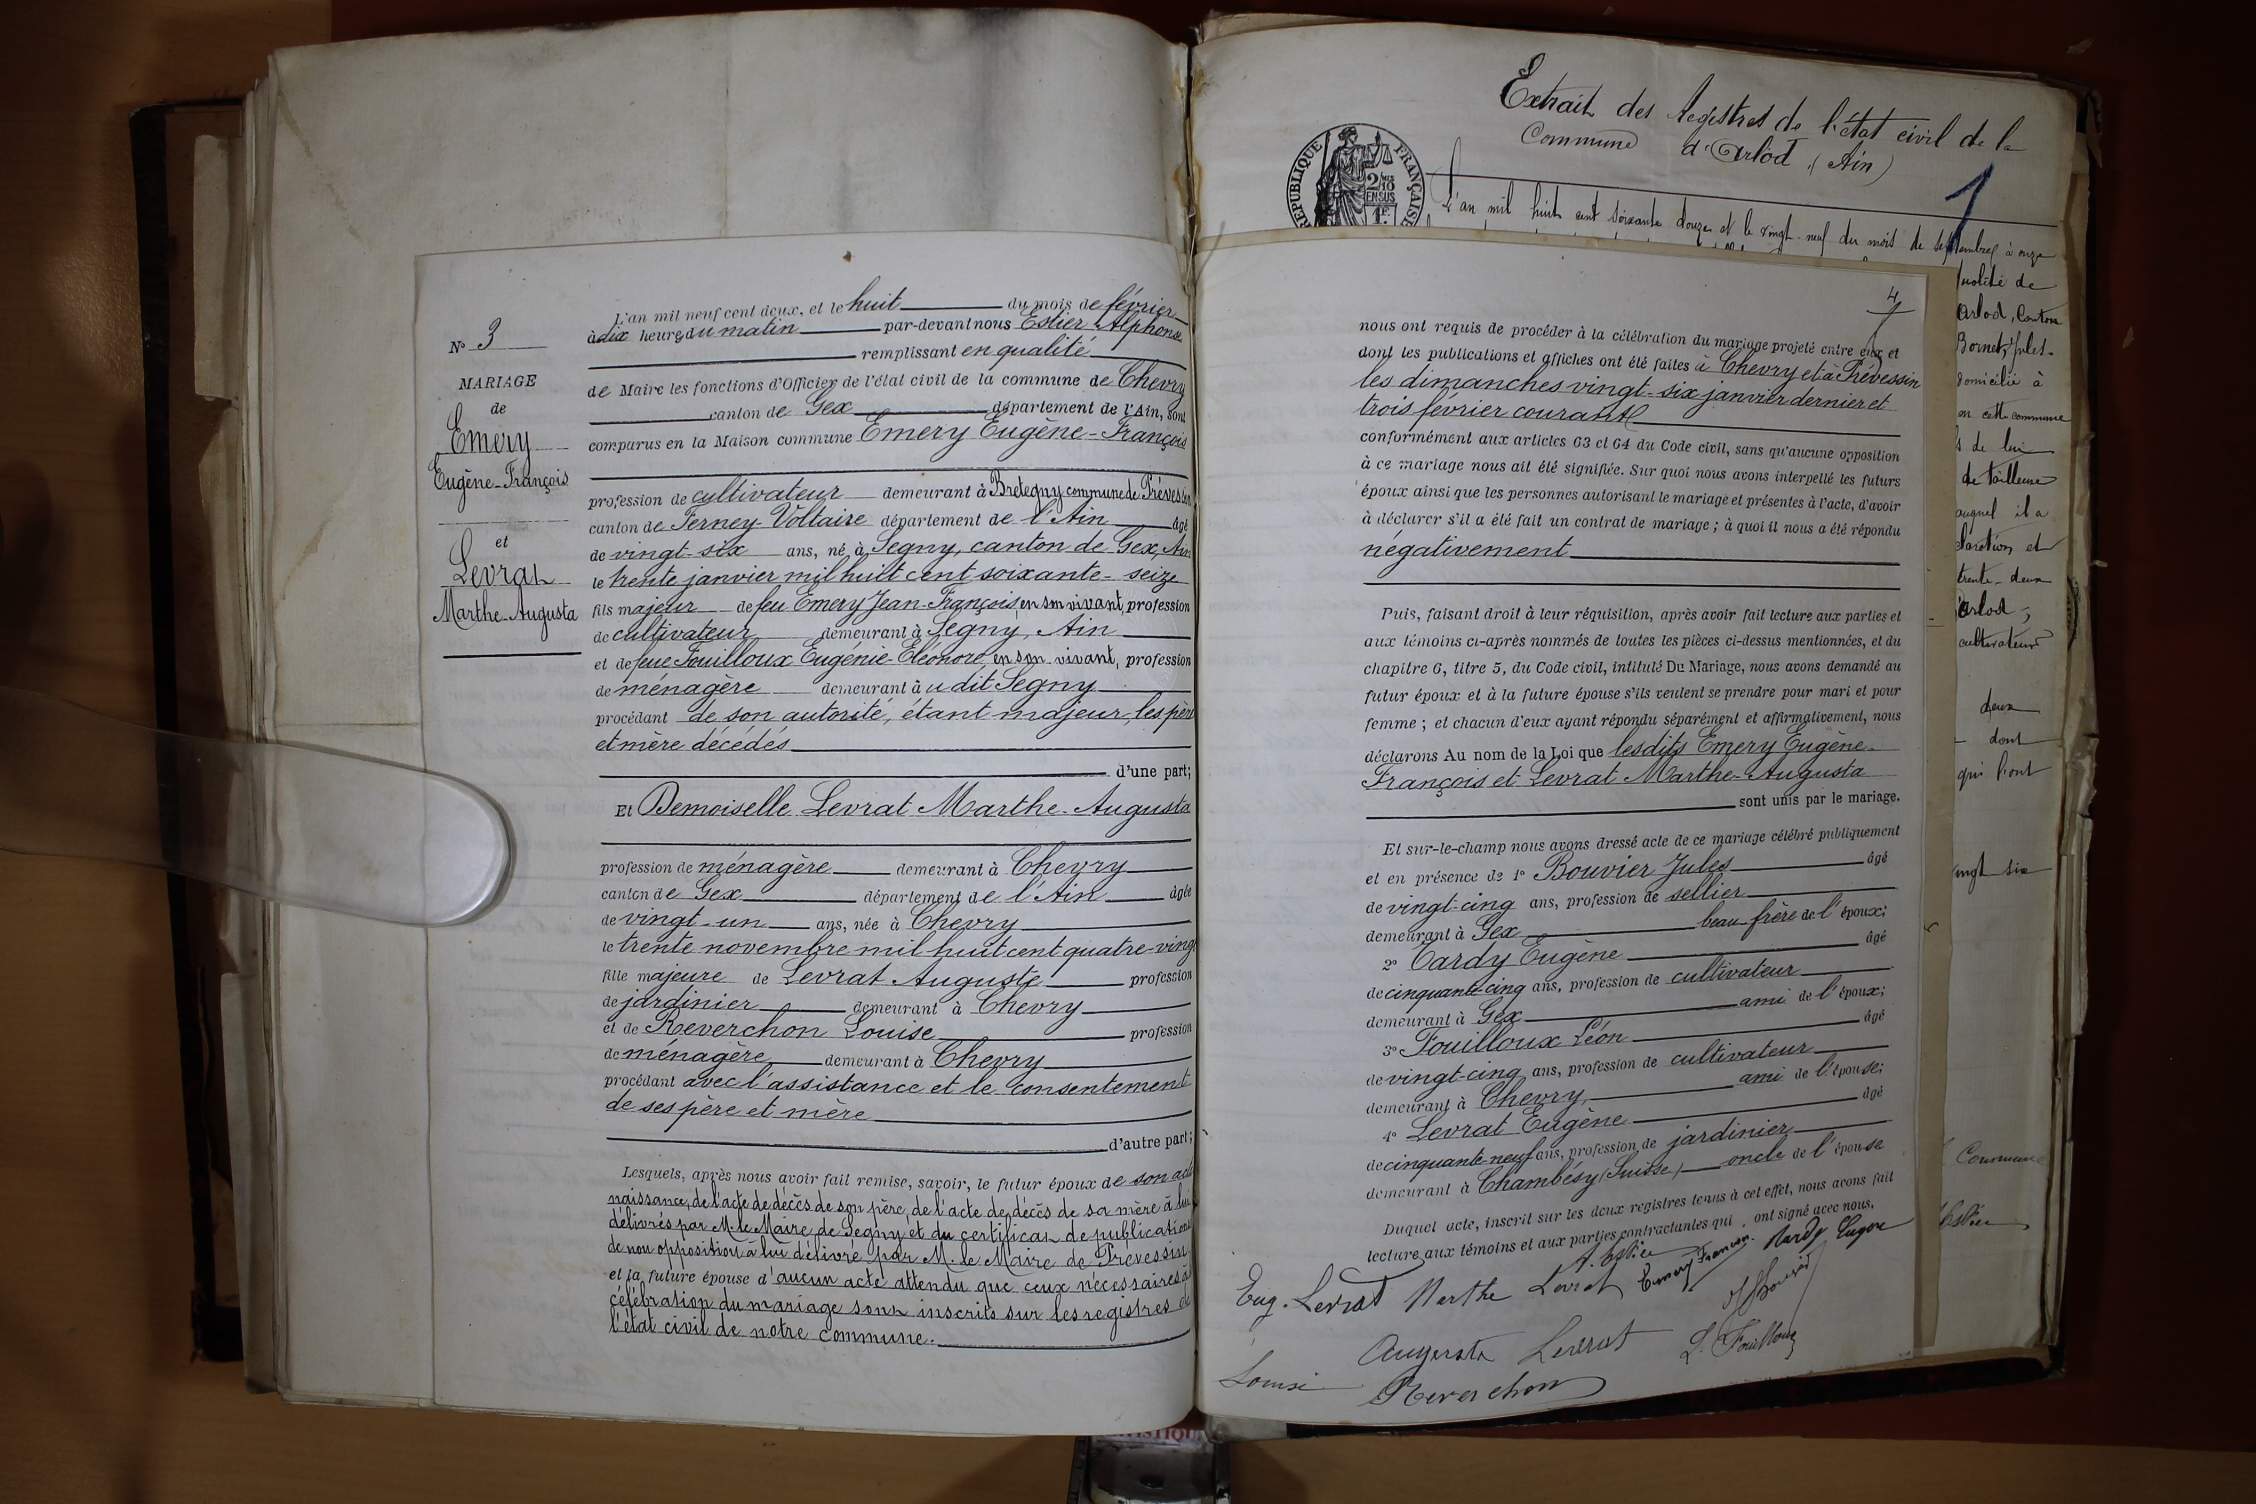 N° 3
MARIAGE
de
Emery
Eugène-François
et
Levrat
Marthe-Augusta
L'an mil neuf cent deux, et le huit du mois de février
à dix heures du matin par-devant nous Estier Alphonse
remplissant en qualité
de Maire les fonctions d'Officier de l'état civil de la commune de Chevry
canton de Gex département de l'Ain, sont
comparus en la Maison commune Emery Eugène-François
profession de cultivateur demeurant à Bretegny commune de Prévessin
canton de Ferney-Voltaire département de l'Ain âgé
de vingt-six ans, né à Segny, canton de Gex, Ain
le trente janvier mil huit cent soixante-seize
fils majeur de feu Emery Jean-François en son vivant, profession
de cultivateur demeurant à Segny, Ain
et de feue Fouilloux Eugénie-Eléonore, en son vivant, profession
de ménagère demeurant à udit Segny
procédant de son autorité, étant majeur, les père
et mère décédés
d'une part;
Et Demoiselle Levrat Marthe-Augusta
profession de ménagère demeurant à Chevry
canton de Gex département de l'Ain âgée
de vingt-un ans, née à Chevry
le trente novembre mil huit cent quatre-vingt
fille majeure de Levrat Auguste profession
de jardinier demeurant à Chevry
et de Reverchon Louise profession
de ménagère demeurant à Chevry
procédant avec l'assistance et le consentement
de ses père et mère
d'autre part;
Lesquels, après nous avoir fait remise, savoir, le futur époux de son acte
naissance, de l'acte de décès de son père, de l'acte de décès de sa mère à lui
délivrés par M. le Maire de Segny et du certificat de publication
de non opposition à lui délivré par M. le Maire de Prévessin
et la future épouse d'aucun acte attendu que ceux nécessaires à
célébration du mariage sont inscrits sur les registres de
l'état civil de notre commune.
Extrait des Registres de l'état civil de la
Commune d'Arlod (Ain)
REPUBLIQUE FRANÇAISE
2/10
EN SUS
1
L'an mil huit cent soixante douze et le vingt-neuf du mois de septembre à onze
qualité de
Arlod, Canton
Bornet, Jules-
domicilié à
en cette commune
s de lui
de tailleuse
auquel il a
trente-deux
Arlod;
cultivateur
deux
dont
qui l'ont
vingt six
Commune
Estier
4
nous ont requis de procéder à la célébration du mariage projeté entre eux et
dont les publications et affiches ont été faites à Chevry et à Prévessin
les dimanches vingt-six janvier dernier et
trois février courant
conformément aux articles 63 et 64 du Code civil, sans qu'aucune opposition
à ce mariage nous ait été signifiée. Sur quoi nous avons interpellé les futurs
époux ainsi que les personnes autorisant le mariage et présentes à l'acte, d'avoir
à déclarer s'il a été fait un contrat de mariage; à quoi il nous a été répondu
négativement
Puis, faisant droit à leur réquisition, après avoir fait lecture aux parties et
aux témoins ci-après nommés de toutes les pièces ci-dessus mentionnées, et du
chapitre 6, titre 5, du Code civil, intitulé Du Mariage, nous avons demandé au
futur époux et à la future épouse s'ils veulent se prendre pour mari et pour
femme; et chacun d'eux ayant répondu séparément et affirmativement, nous
déclarons Au nom de la Loi que lesdits Emery Eugène-
François et Levrat Marthe-Augusta
sont unis par le mariage.
Et sur-le-champ nous avons dressé acte de ce mariage célébré publiquement
et en présence de 1° Bouvier Jules âgé
de vingt-cinq ans, profession de sellier
demeurant à Gex beau-frère de l'époux;
2° Cardy Eugène âgé
de cinquante-cinq ans, profession de cultivateur
demeurant à Gex ami de l'époux;
3° Fouilloux Léon âgé
de vingt-cinq ans, profession de cultivateur
demeurant à Chevry, ami de l'épouse;
4° Levrat Eugène âgé
de cinquante-neuf ans, profession de jardinier
demeurant à Chambésy (Suisse) oncle de l'épouse
Duquel acte, inscrit sur les deux registres tenus à cet effet, nous avons fait
lecture aux témoins et aux parties contractantes qui ont signé avec nous.
A. Estier
Eug. Levrat Marthe Levrat Emery Francois
Augusta Levrat L. Fouilloux
Louise Reverchon